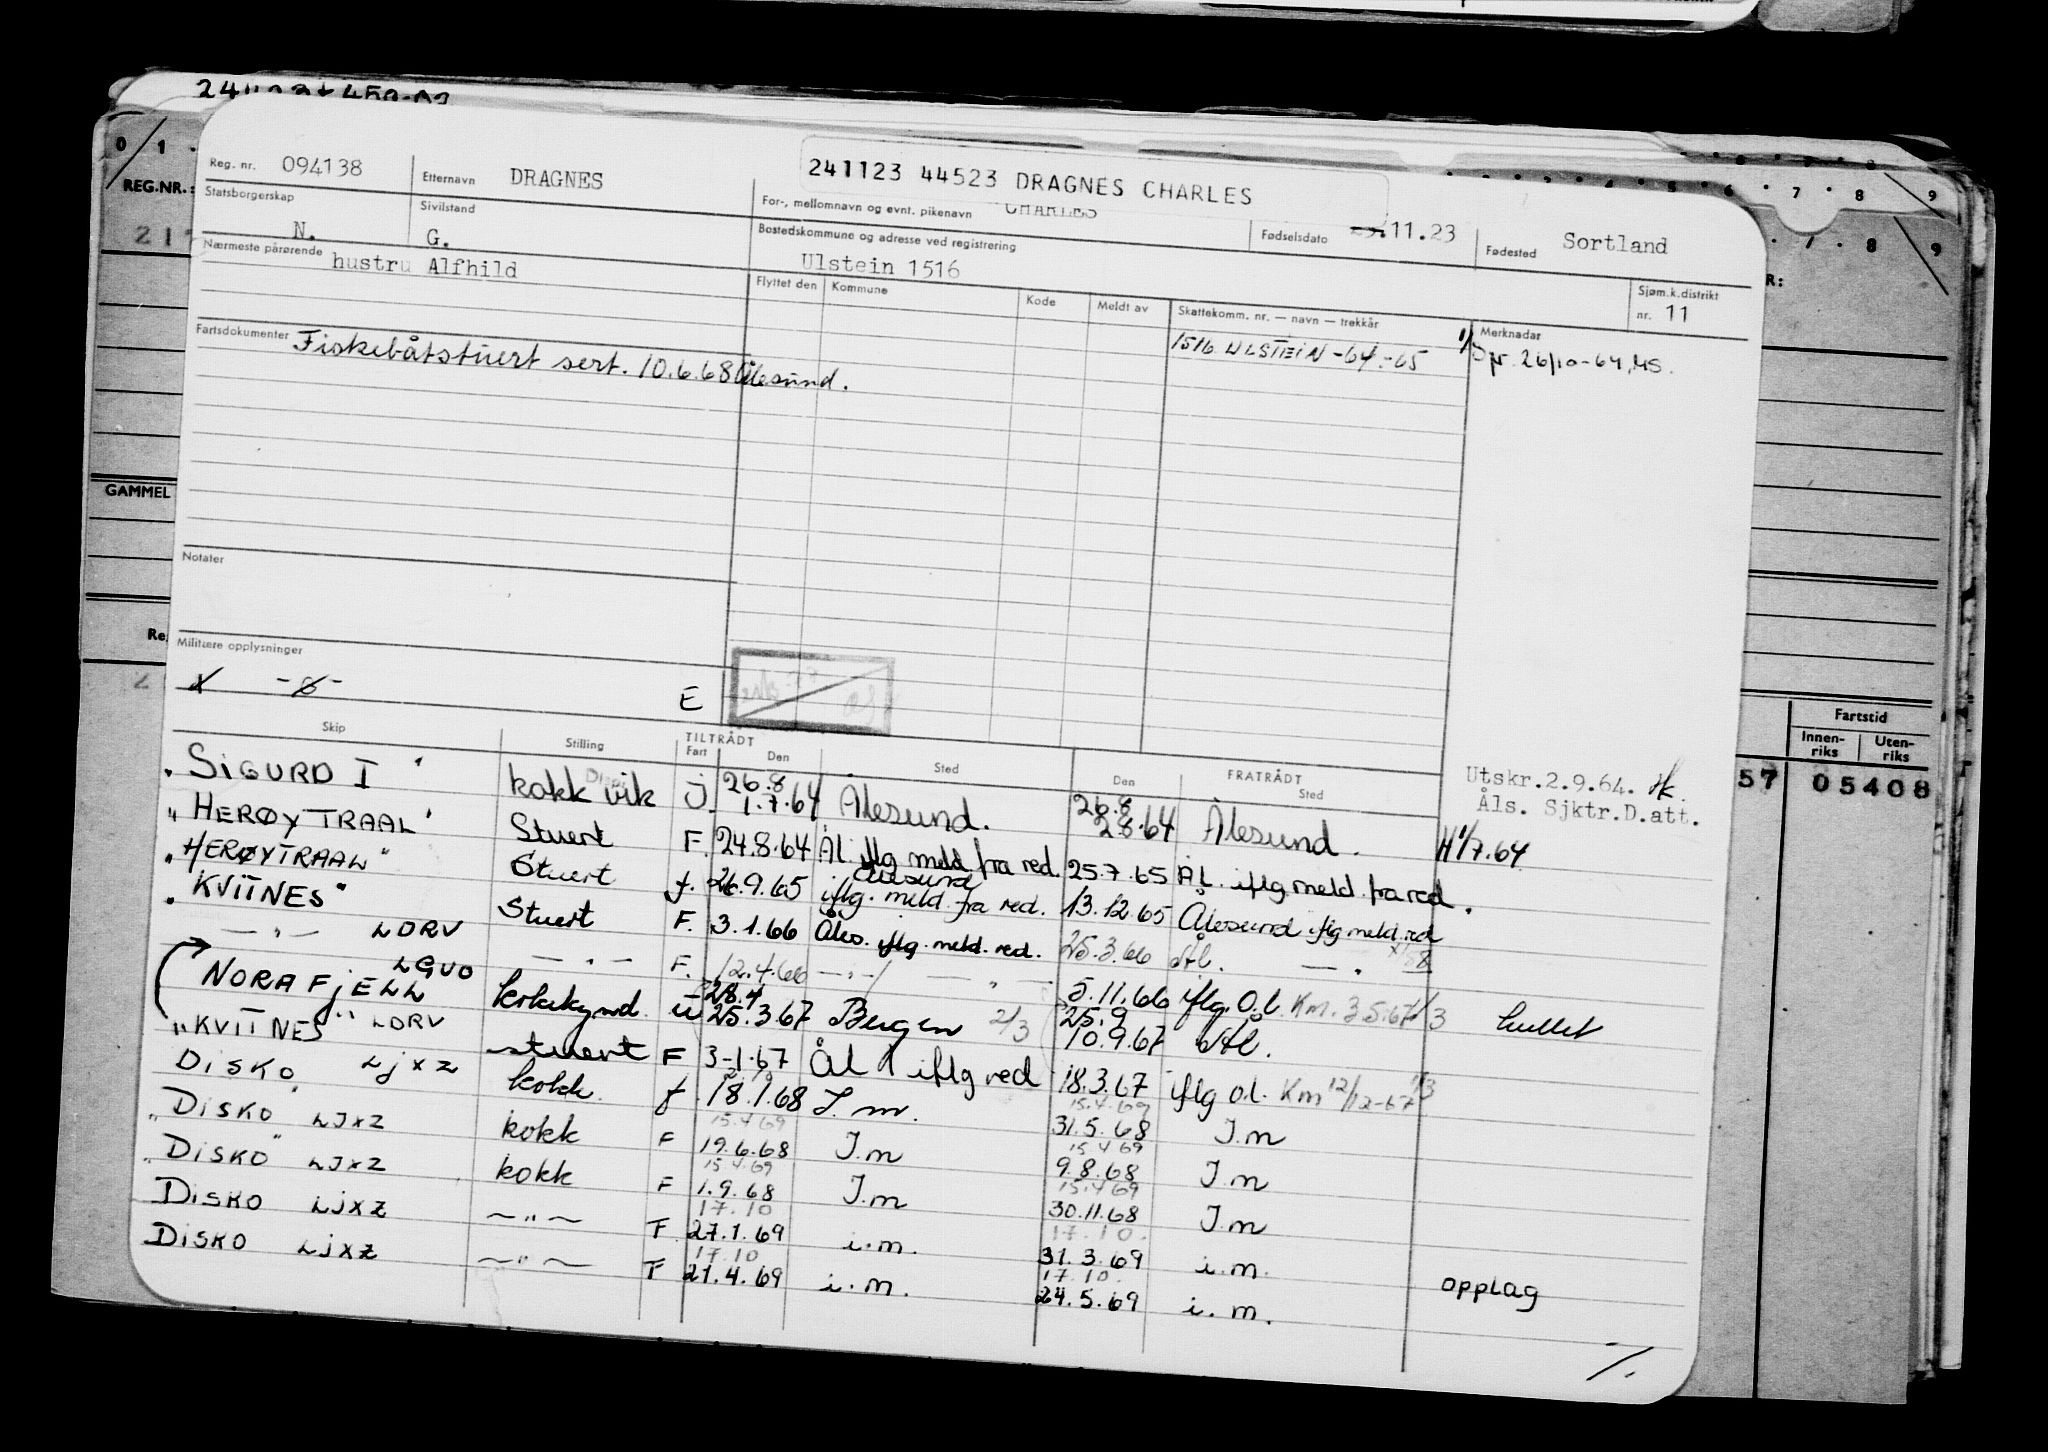 REG.NR.:
Reg. nr. 094138 Etternavn DRAGNES 241123 44523 DRAGNES CHARLES
Statsborgerskap N. Sivilstand G. For-, mellomnavn og evnt. pikenavn CHARLES Fødselsdato .11.23 Fødested Sortland
Nærmeste pårørende hustru Alfhild Bostedskommune og adresse ved registrering Ulstein 1516
Flyttet den Kommune Kode Meldt av Skattekomm. nr. — navn — trekkår Sjøm.k.distrikt nr. 11
Fartsdokumenter Fiskebåtstuert sert. 10.6.68 Ålesund. 1516 ULSTEIN -64.-65 Merknader
26/10-64, MS.
GAMMEL
Notater
Militære opplysninger
E
Fartstid
Innen-riks Uten-riks
57 05408
Skip Stilling TILTRÅDT Fart Den Sted FRATRÅDT Den Sted
Utskr.2.9.64.
Åls. Sjktr.D.att.
"SIGURD I" kokk vik J. 26.8 1.7.64 Ålesund. 26.8 2.8.64 Ålesund. 1/7.64
"HERØYTRAAL" Stuert F. 24.8.64 Ål. iflg meld fra red. 25.7.65 ÅL. iflg meld. fra red.
"HERØYTRAAL" Stuert f. 26.9.65 Ålesund iflg. meld. fra red. 13.12.65 Ålesund iflg meld. red
"KVITNES" Stuert F. 3.1.66 Åles. iflg. meld. red. 25.3.66 Ål.
— " — LDRV — " — F. 12.4.66 — " — 5.11.66 iflg. O.l. Km. 3.5.67 1/3
NORAFJELL LGUO kokk u 28.4 25.3.67 Bergen 2/3 25.9 10.9.67 Ål. hullet
"KVITNES" LDRV stuert F 3-1.67 ÅL iflg red 18.3.67 iflg o.l. Km 12/12-67 1/3
DISKO LJXZ kokk f. 18.1.68 I.m. 15.4.69 31.5.68 I.m
"DISKO" LJXZ kokk F 15.4.69 19.6.68 I.m 15.4.69 9.8.68 I.m
"DISKO" LJXZ kokk F 15.4.69 1.9.68 I.m 15.4.69 30.11.68 I.m
DISKO LJXZ — " — F 17.10 27.1.69 i.m. 17.10. 31.3.69 i.m.
DISKO LJXZ — " — F 17.10 21.4.69 i.m. 17.10. 24.5.69 i.m. opplag